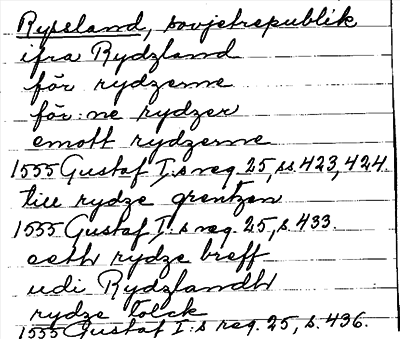 Ryssland, sovjetrepublik
ifra Rydzland
för rydzerne
för:ne rydzer
emott rydzerne
1555 Gustaf I:s reg. 25, ss. 423, 424.
till rydze grentzen
1555 Gustaf I:s reg. 25, s. 433.
eeth rydze breff
udi Rydzlandh
rydze tolck
1555 Gustaf I:s reg. 25, s. 436.